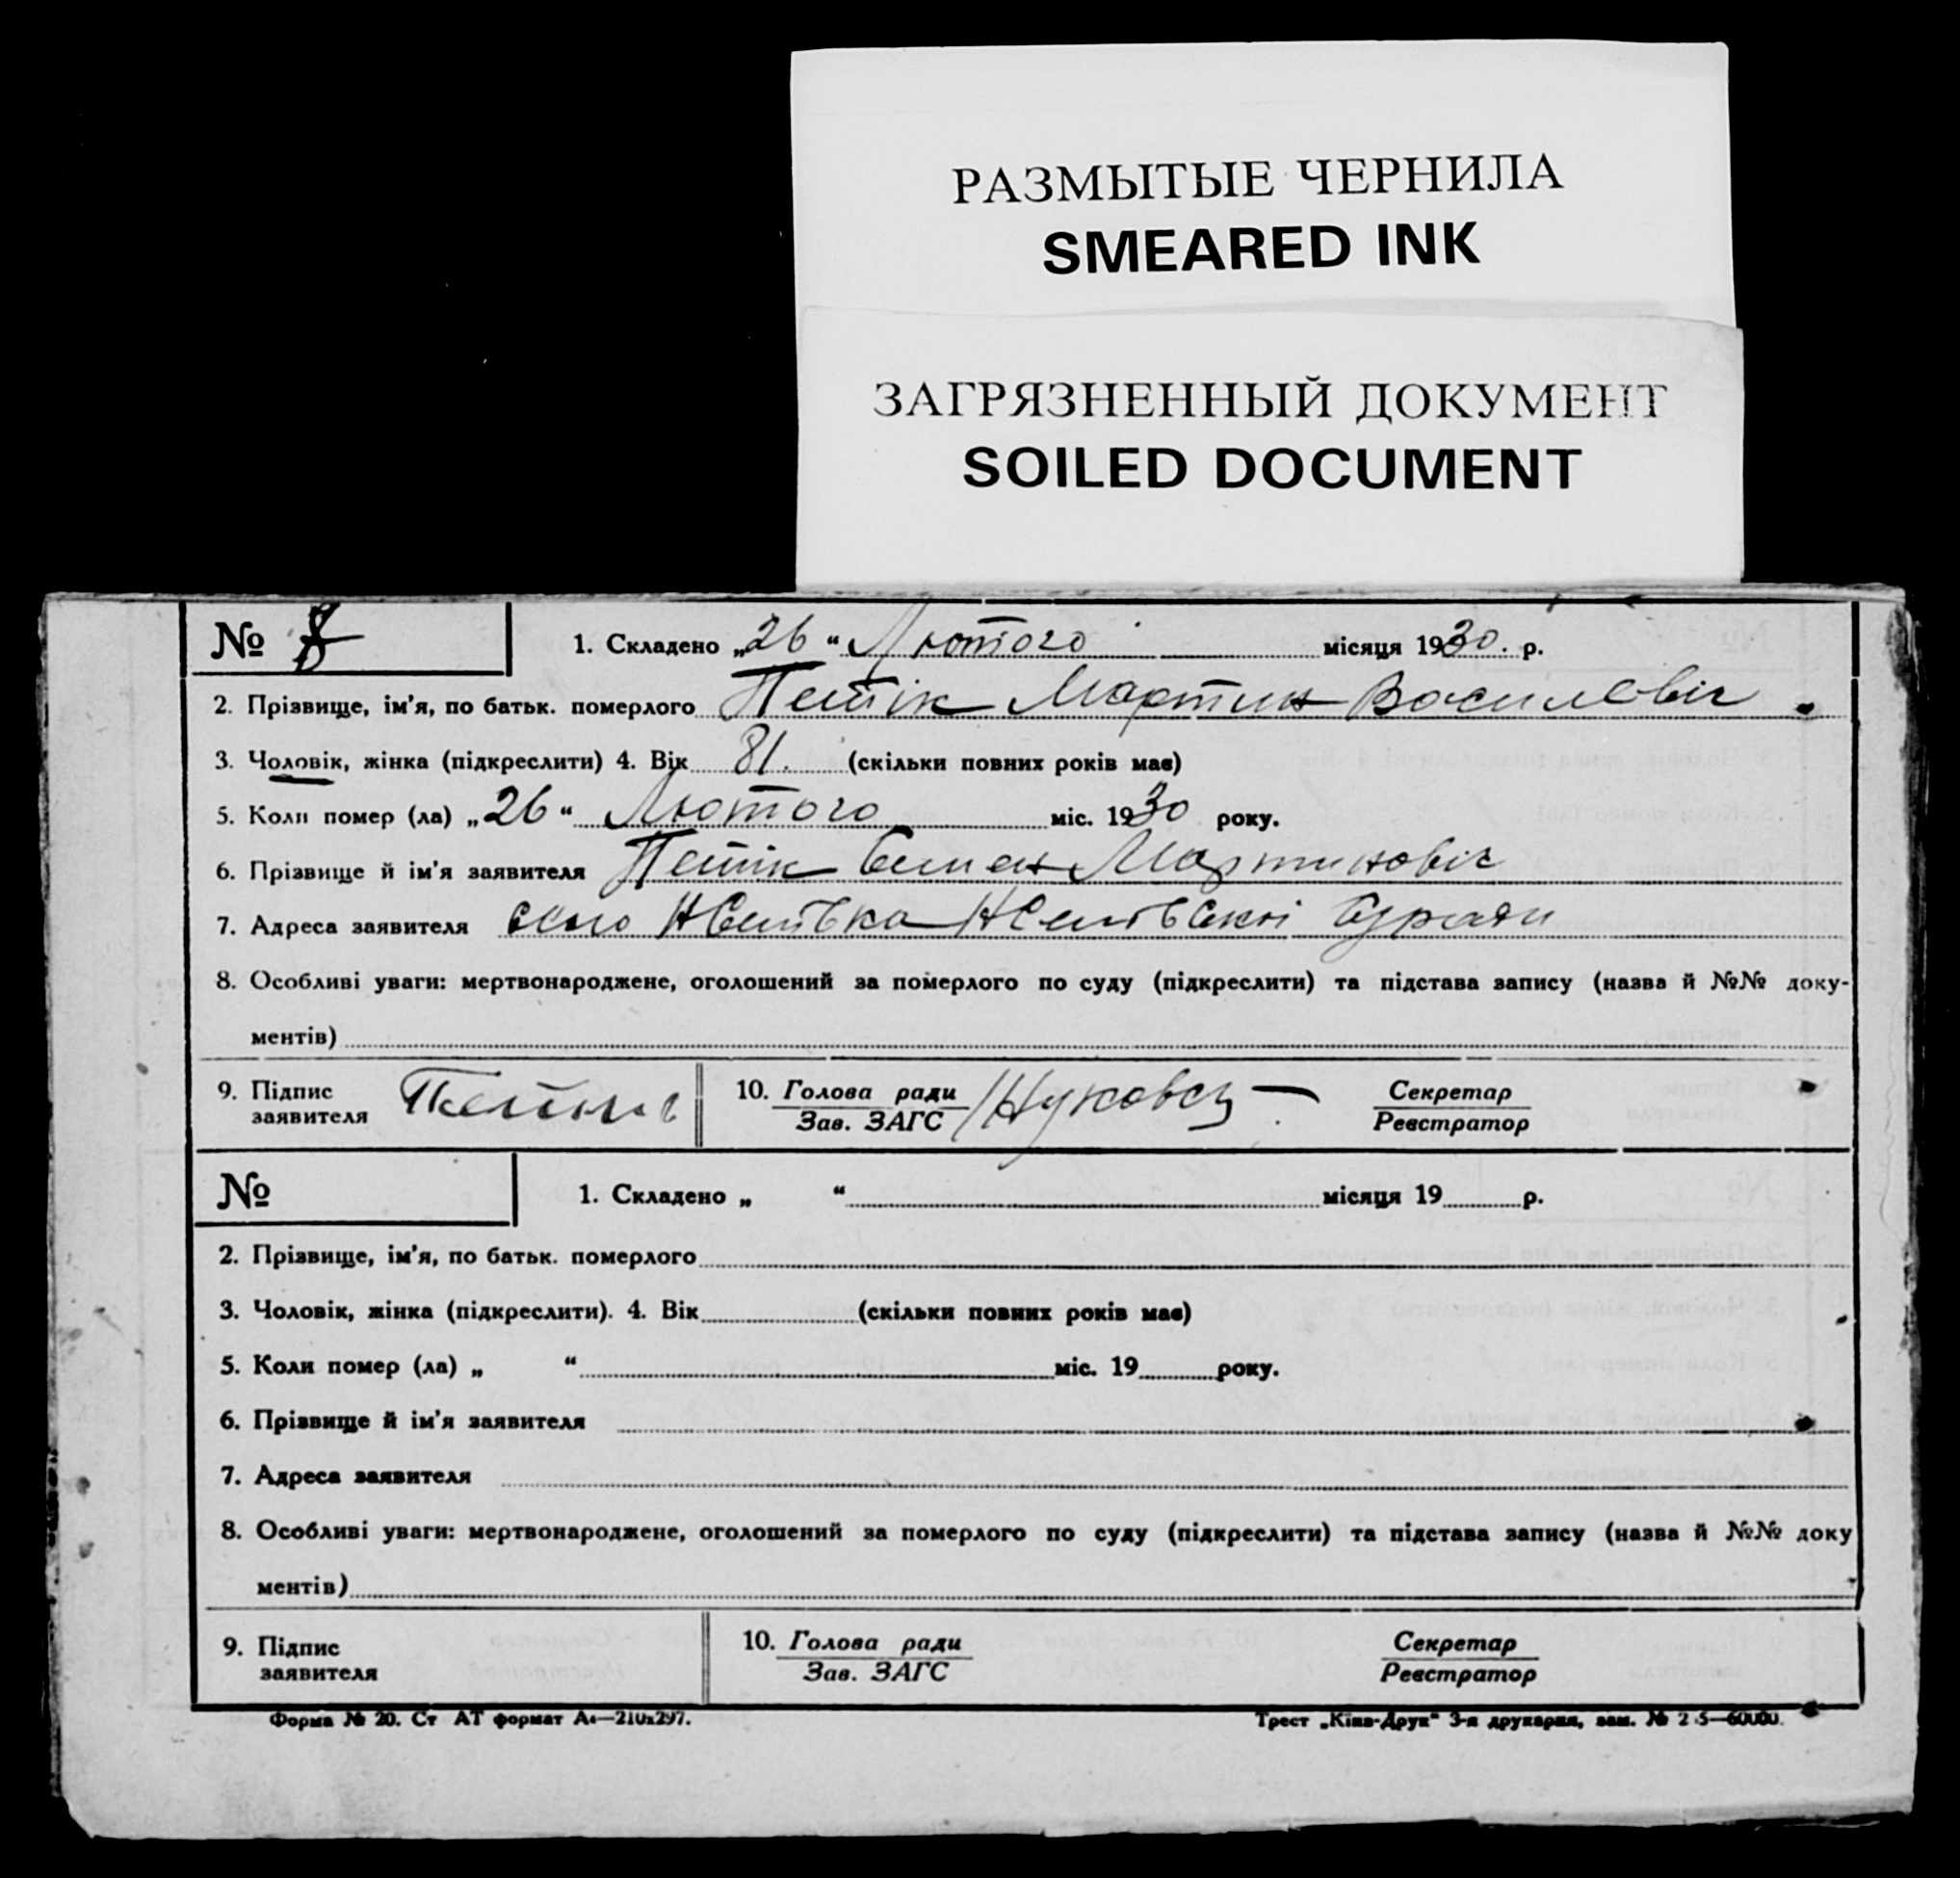 РАЗМЫТЫЕ ЧЕРНИЛА
SMEARED INK
ЗАГРЯЗНЕННЫЙ ДОКУМЕНТ
SOILED DOCUMENT
№ 8
1. Складено „26“ Лютого місяця 1930. р.
2. Прізвище, ім'я, по батьк. померлого Петік Мартин Василевіч
3. Чоловік, жінка (підкреслити) 4. Вік 81. (скільки повних років має)
5. Коли помер (ла) „26“ Лютого міс. 1930 року.
6. Прізвище й ім'я заявителя Петік Семен Мартиновіч
7. Адреса заявителя село
8. Особливі уваги: мертвонароджене, оголошений за померлого по суду (підкреслити) та підстава запису (назва й №№ доку-
ментів)
9. Підпис заявителя
10. Голова ради
Зав. ЗАГС
Секретар
Реєстратор
№
1. Складено „ “ місяця 19 р.
2. Прізвище, ім'я, по батьк. померлого
3. Чоловік, жінка (підкреслити). 4. Вік (скільки повних років має)
5. Коли помер (ла) „ “ міс. 19 року.
6. Прізвище й ім'я заявителя
7. Адреса заявителя
8. Особливі уваги: мертвонароджене, оголошений за померлого по суду (підкреслити) та підстава запису (назва й №№ доку
ментів)
9. Підпис заявителя
10. Голова ради
Зав. ЗАГС
Секретар
Реєстратор
Форма № 20. Ст АТ формат А4—210x297.
Трест „Київ-Друк“ 3-я друкарня, зам. №